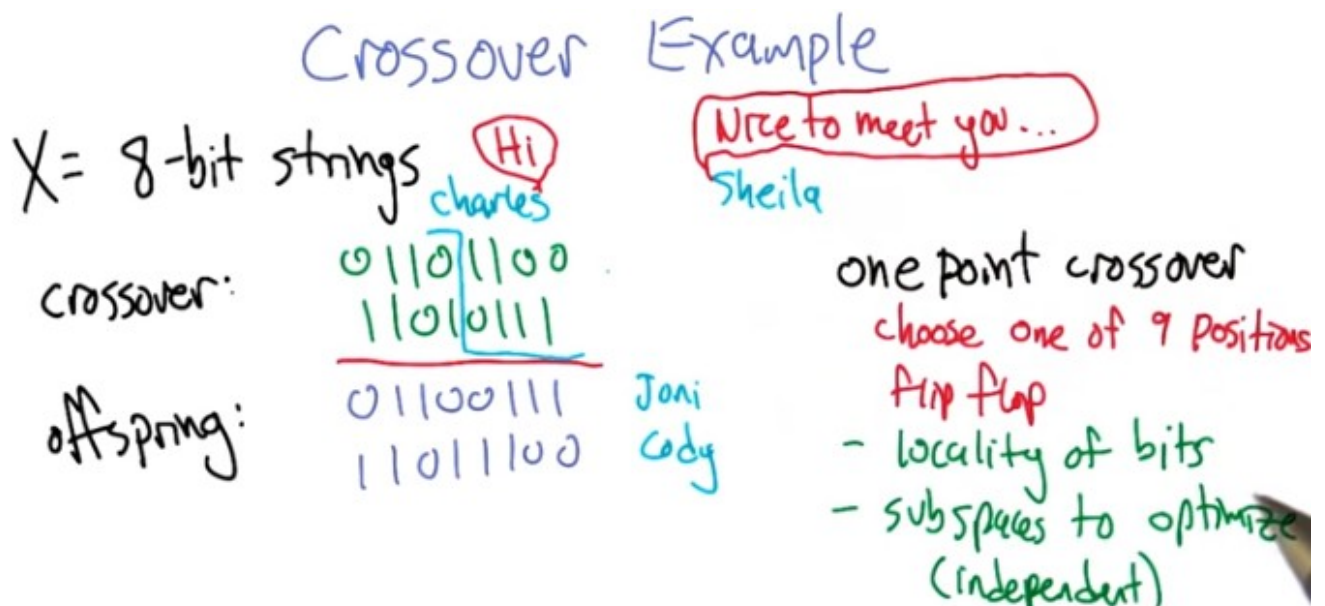 Crossover Example
X= 8-bit strings
Hi
Nice to meet you...
charles
Sheila
crossover:
01101100
11010111
offspring:
01100111 Joni
11011100 Cody
one point crossover
choose one of 9 positions
flip flop
- locality of bits
- subspaces to optimize
(independent)